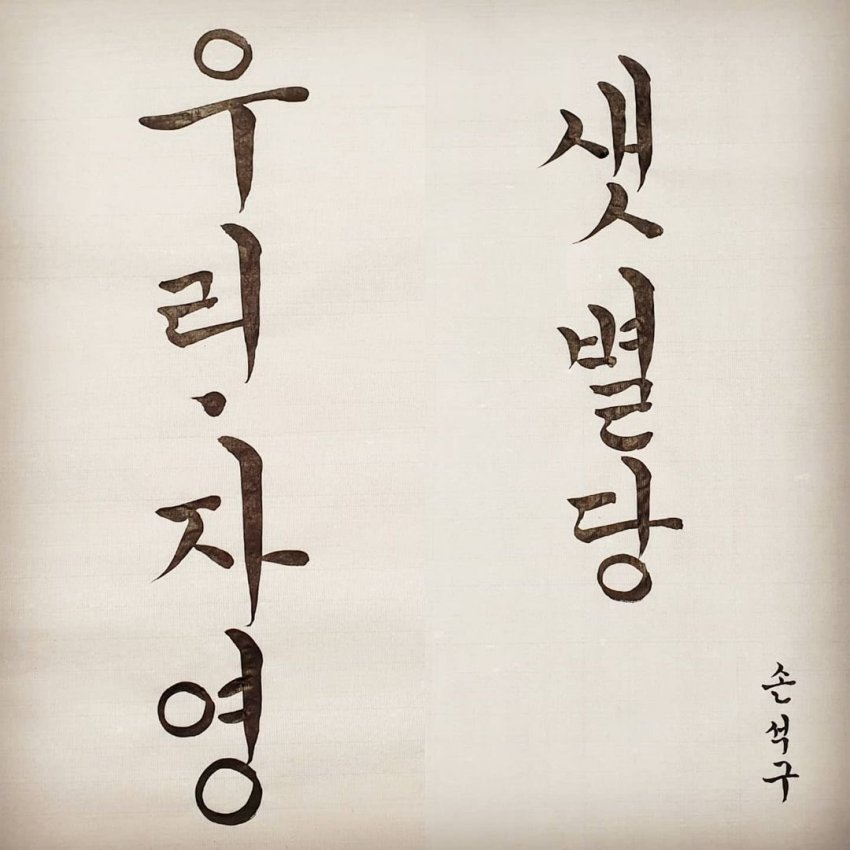 우리·자영
샛별당
손석구